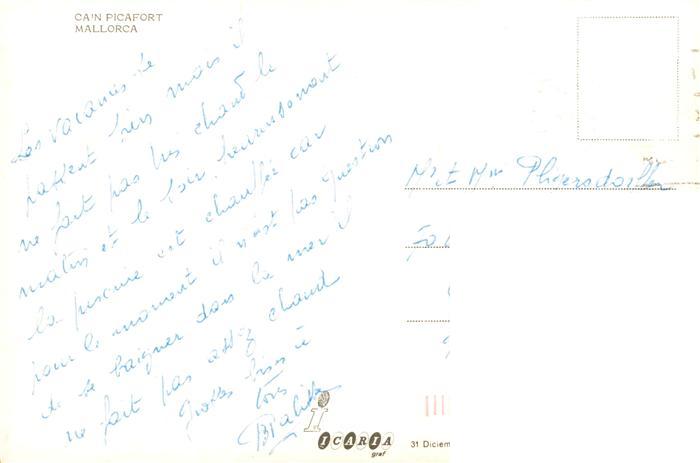 CA'N PICAFORT
MALLORCA
Les vacances se
passent très bien mais il
ne fait pas très chaud le
matin et le soir, heureusement
la piscine est chauffée car
pour le moment il n'est pas question
de se baigner dans la mer il
ne fait pas assez chaud
Grosses bises à
tous
Mr et Mme
ICARIA
graf
31 Diciem